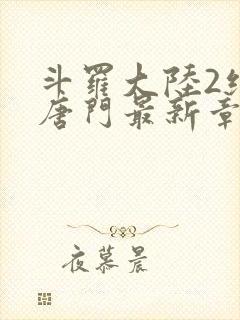 斗羅大陸2絕
唐門最新章
夜慕晨